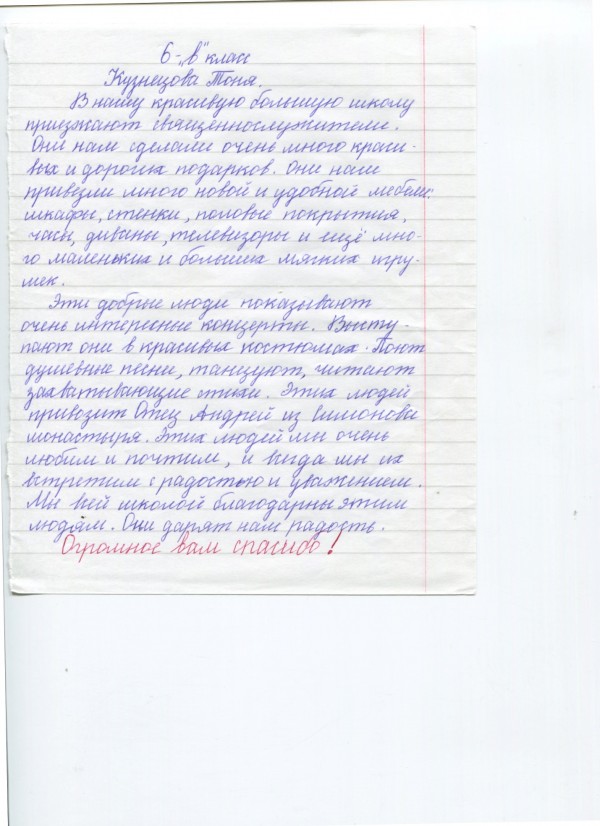 6-„в" класс
Кузнецова Тоня.
В нашу красивую большую школу
приезжают священнослужители.
Они нам сделали очень много краси-
вых и дорогих подарков. Они нам
привезли много новой и удобной мебели:
шкафы, стенки, половые покрытия,
часы, диваны, телевизоры и ещё мно-
го маленьких и больших мягких игру-
шек.
Эти добрые люди показывают
очень интересные концерты. Высту-
пают они в красивых костюмах. Поют
душевные песни, танцуют, читают
захватывающие стихи. Этих людей
привозит Отец Андрей из Симонова
монастыря. Этих людей мы очень
любим и почтим, и всегда мы их
встретим с радостью и уважением.
Мы всей школой благодарны этим
людям. Они дарят нам радость.
Огромное вам спасибо!